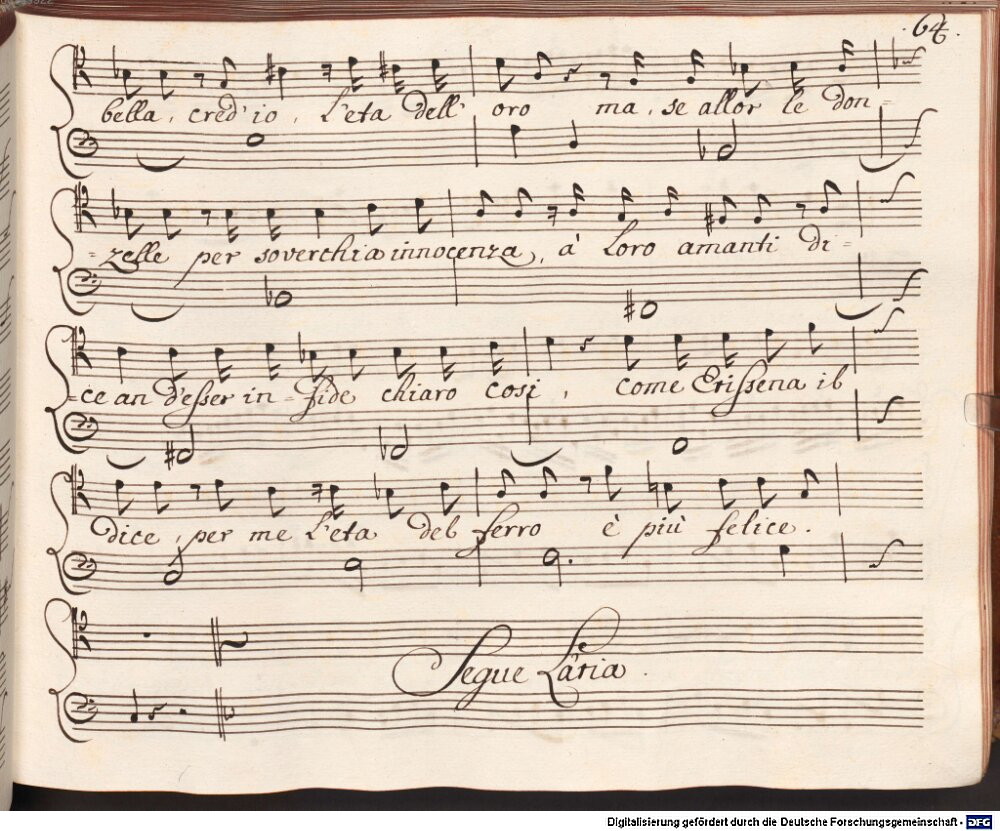 64.
bella, cred'io, l'eta dell' oro ma, se allor le don-
-zelle per soverchia innocenza, à loro amanti di-
-ce an d'esser in-fide chiaro cosi, come Erissena il
dice, per me l'eta del ferro è più felice.
Segue L'aria.
Digitalisierung gefördert durch die Deutsche Forschungsgemeinschaft - DFG